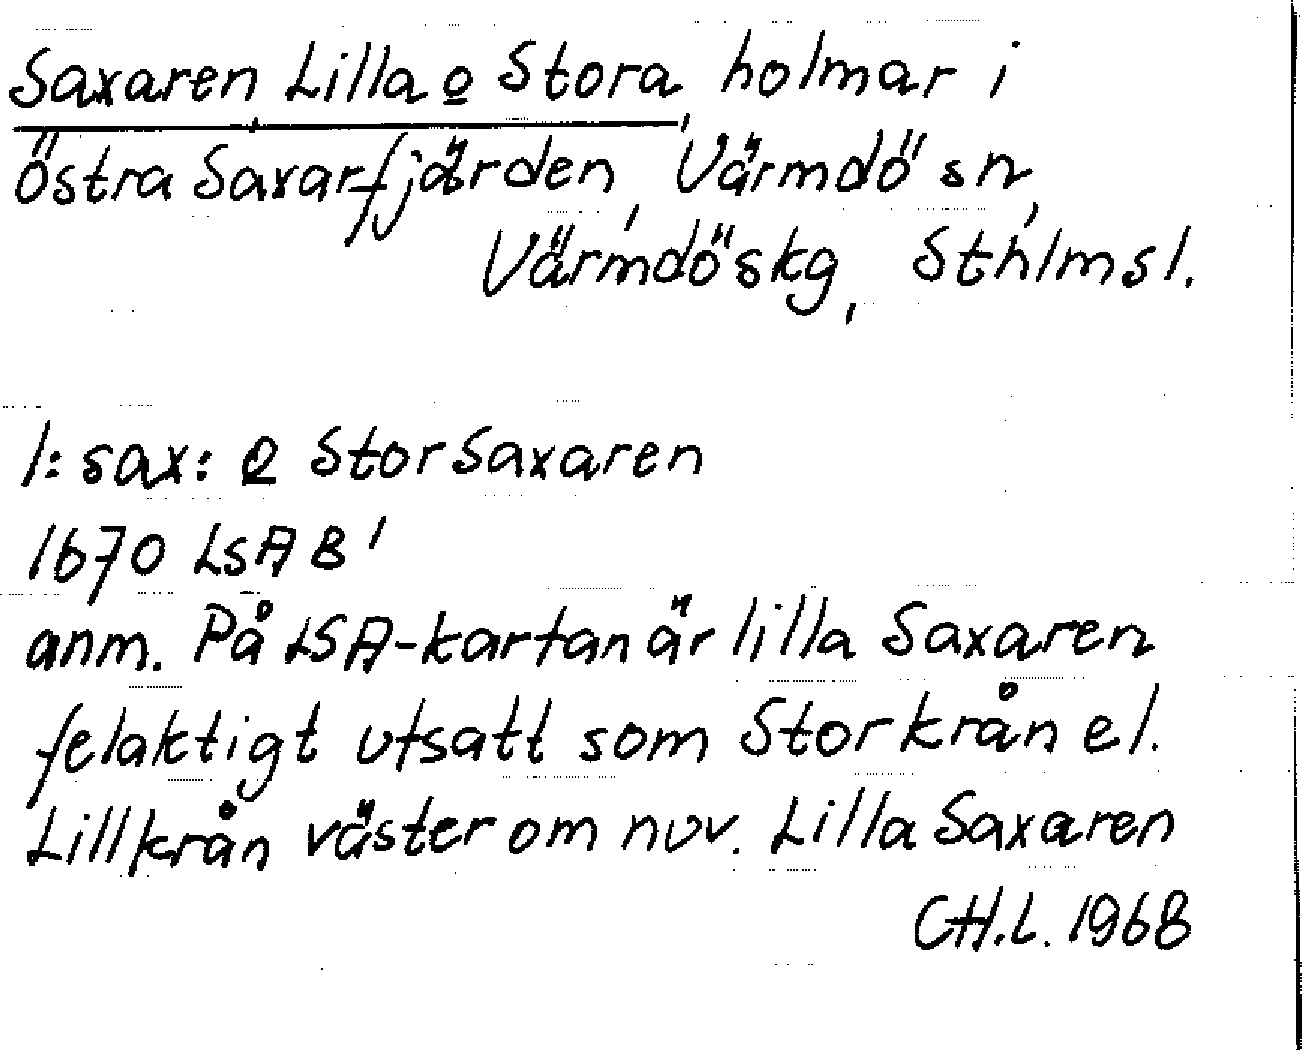 Saxaren, Lilla o Stora, holmar i
östra Saxarfjärden, Värmdö sn,
Värmdö skg, Sthlms l.
l: sax: o Stor Saxaren
1670 LSA B 1
anm. På LSA-kartan är lilla Saxaren
felaktigt utsatt som Storkrån el.
Lillkrån väster om nuv. Lilla Saxaren
CH.L. 1968